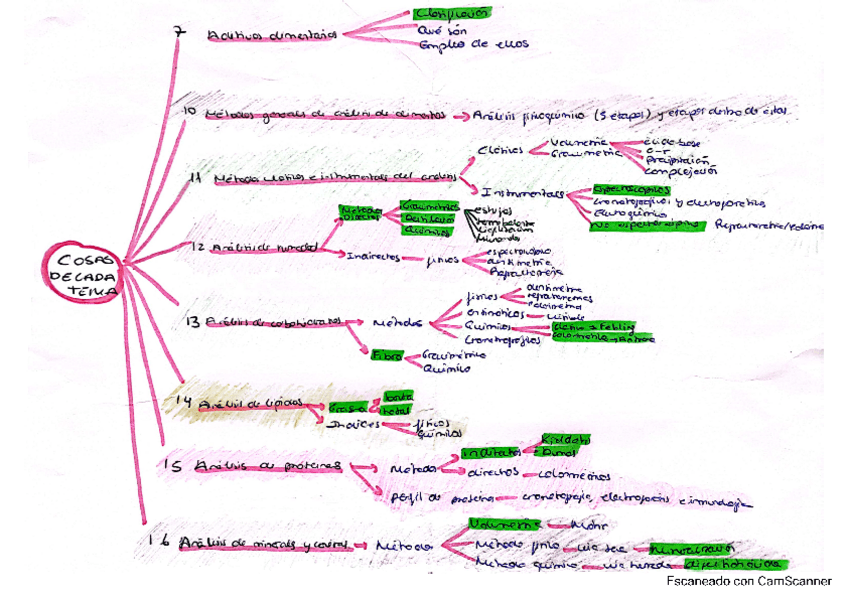 COSAS
DE CADA
TEMA
7 Aditivos alimentarios
Clasificación
Qué són
Empleo de ellos
10 Métodos generales de análisis de alimentos → Análisis fisicoquímico (5 etapas) y etapas dentro de estas
11 Métodos clásicos e instrumentales del análisis
Clásicos
Volumetría
Gravimetría
ácido-base
o-r
Precipitación
Complejación
Instrumentales
espectroscópicos
cromatográficos y electroforéticos
Electroquímico
No espectroscópicos
12 Análisis de humedad
Métodos
Directos
Gravimétricos
Destilación
Químicos
estufas
termobalanza
liofilización
Indirectos
físicos
espectroscopio
densimetría
Refractometría
13 Análisis de carbohidratos
Métodos
físicos
densimetría
polarimetría
Enzimáticos
Químicos
→ Fehling
Cromatográficos
Fibra
Gravimétrico
Químico
14 Análisis de lípidos
Grasa
bruta
total
Indices
físicos
químicos
15 Análisis de proteínas
Método
indirectos
Kjeldahl
Dumas
directos
colorimétricos
Perfil de proteína
cromatografía, electroforesis e inmunología
16 Análisis de minerales y cenizas
Métodos
Volumetría
Mohr
Método físico
vía seca
mineralización
Método químico
vía humeda